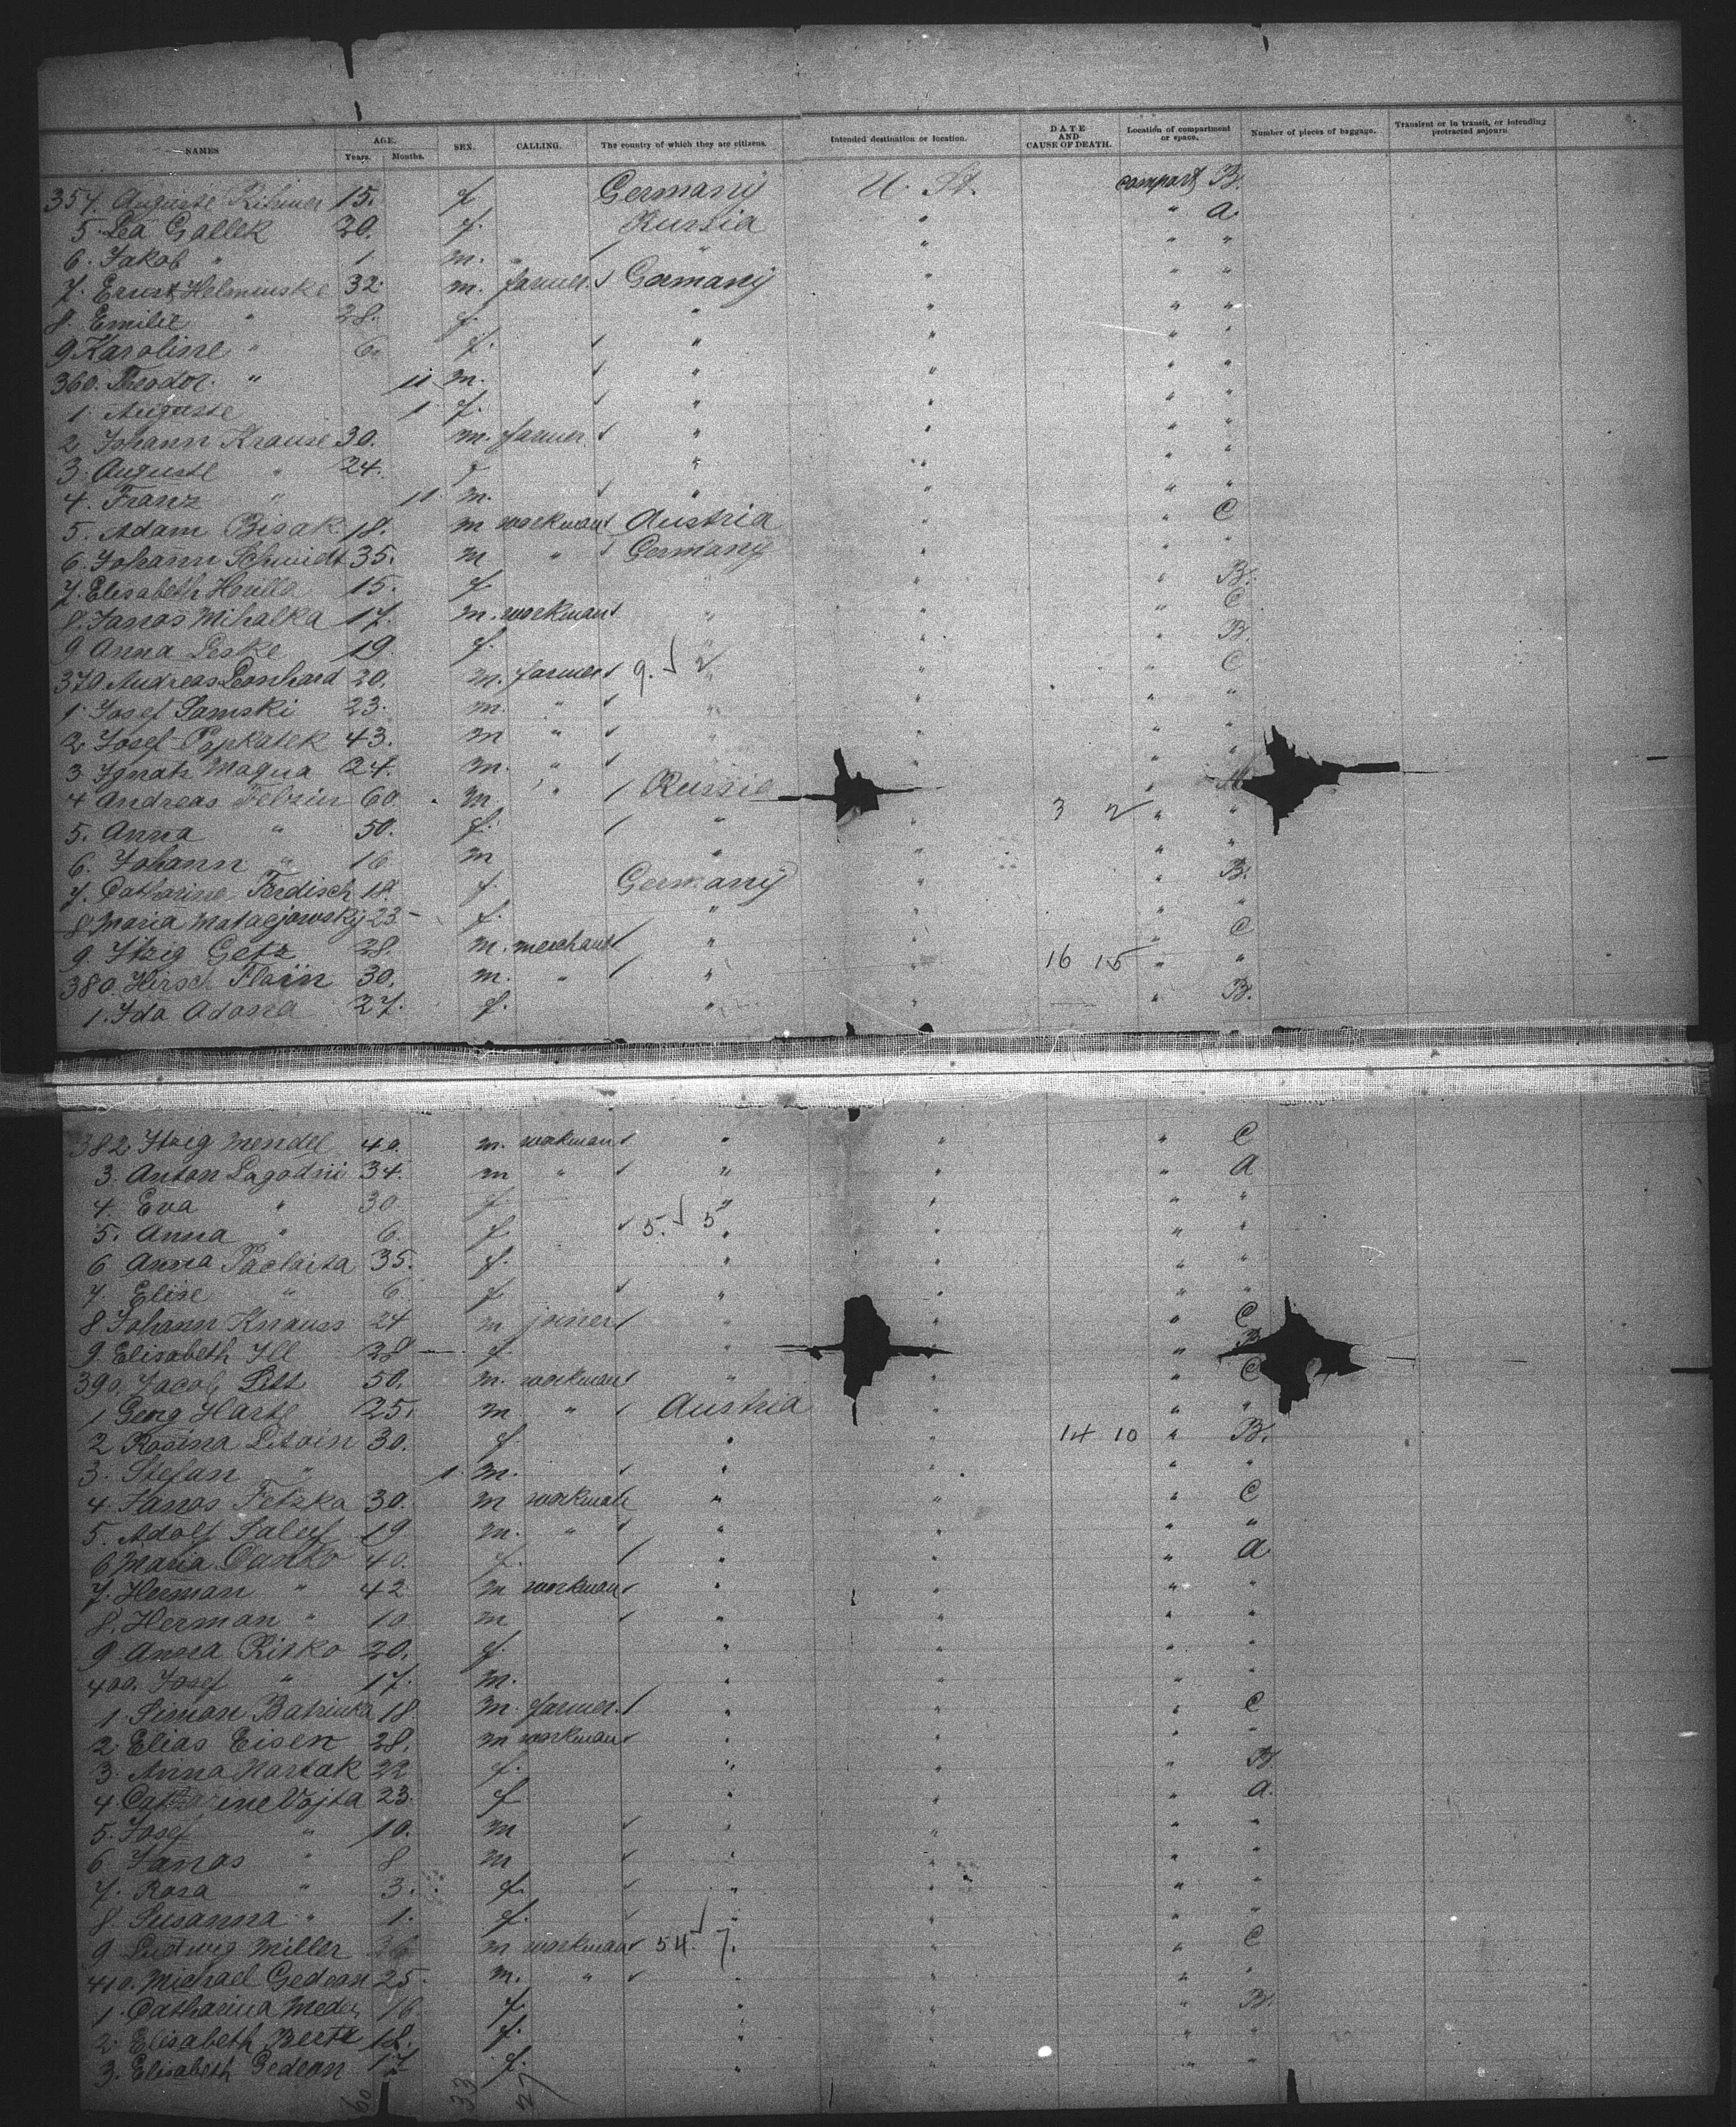 NAMES AGE. Years. Months. SEX. CALLING. The country of which they are citizens. Intended destination or location. DATE AND CAUSE OF DEATH. Location of compartment or space. Number of pieces of baggage. Transient or in transit, or intending protracted sojourn.
354. Auguste 15. f Germany U. St. compart B.
5. Lea Gallek 20. f. Russia " " a.
6. Jakob " 1 m. " " " "
7. Ernst Helminske 32. m. farmer Germany " " "
8. Emilie " 28. f. " " " "
9 Karoline " 6. f. " " " "
360. Theodor. " 11 m. " " " "
1. Auguste 1 f. " " " "
2. Johann Krause 30. m. farmer " " " "
3. Auguste " 24. f " " " "
4. Franz " 11 m. " " " "
5. Adam Bisak 18. m workman Austria " " C
6. Johann Schmidt 35. m " Germany " " "
7. Elisabeth 15. f " " " B.
8. Janos Mihalka 17. m. workman " " " C
9 Anna Leske 19. f. " " " B.
370 Andreas Leonhard 20. m. farmer 9. 2 " " " C
1. Josef Samski 23. m. " " " "
2. Josef Popkatek 43. m " " " " "
3. Ignatz Magua 24. m. " " " "
4 Andreas 60. m " Russia "
5. Anna " 50. f. " " 3 2 " "
6. Johann " 16 m " " " "
7. Catharine Ferdisch 18. f. Germany " " B.
8 Maria Matacjowsky 23 f. " " " "
9. Itzig Getz 28. m. merchant " " " C
380. Hirsch Flain 30. m. " " " 16 15 " "
1. Ida Adona 27. f. " " " B.
382. Itzig Mendel 40. m. workman " " " C
3. Anton Lagodni 34. m " " " " A
4. Eva " 30. f " " " "
5. Anna " 6. f 5. 5 " " " "
6 Anna 35. f. " " " "
7. Elise " 6. f " " " "
8 Johann Knauss 24 m joiner " " " C
9. Elisabeth Ill 28 f. " " " B
390. Jacob Litt 50. m. workman " " C
1 Georg Hartl 25. m " Austria " " "
2 Rosina 30. f. " " 14 10 " B.
3. Stefan " 1 m. " " " "
4. Janos Fetzka 30. m workman " " " C
5. Adolf 19 m. " " " " "
6 Maria Danko 40. f. " " " a
7. Herman " 42 m workman " " " "
8. Herman " 10. m " " " "
9 Anna Risko 20. f. " " " "
400. Josef " 17. m. " " " "
1. Simon 18. m. farmer. " " " C
2. Elias Eisen 28. m workman " " " "
3. Anna Hartak 22 f. " " " B
4. Catharine Vojta 23. f " " " a.
5. Josef " 10. m " " " "
6. Janos " 8 m " " " "
7. Rosa " 3. f. " " " "
8. Susanna " 1. f. " " " "
9. Ludwig Miller m workman 54. 7. " " C
410. Michael Gedeon 25. m. " " " " "
1. Catharina 16. f. " " " B.
2. Elisabeth 18. f. " " " "
3. Elisabeth Gedeon 17 f. " " " "
60 33 27